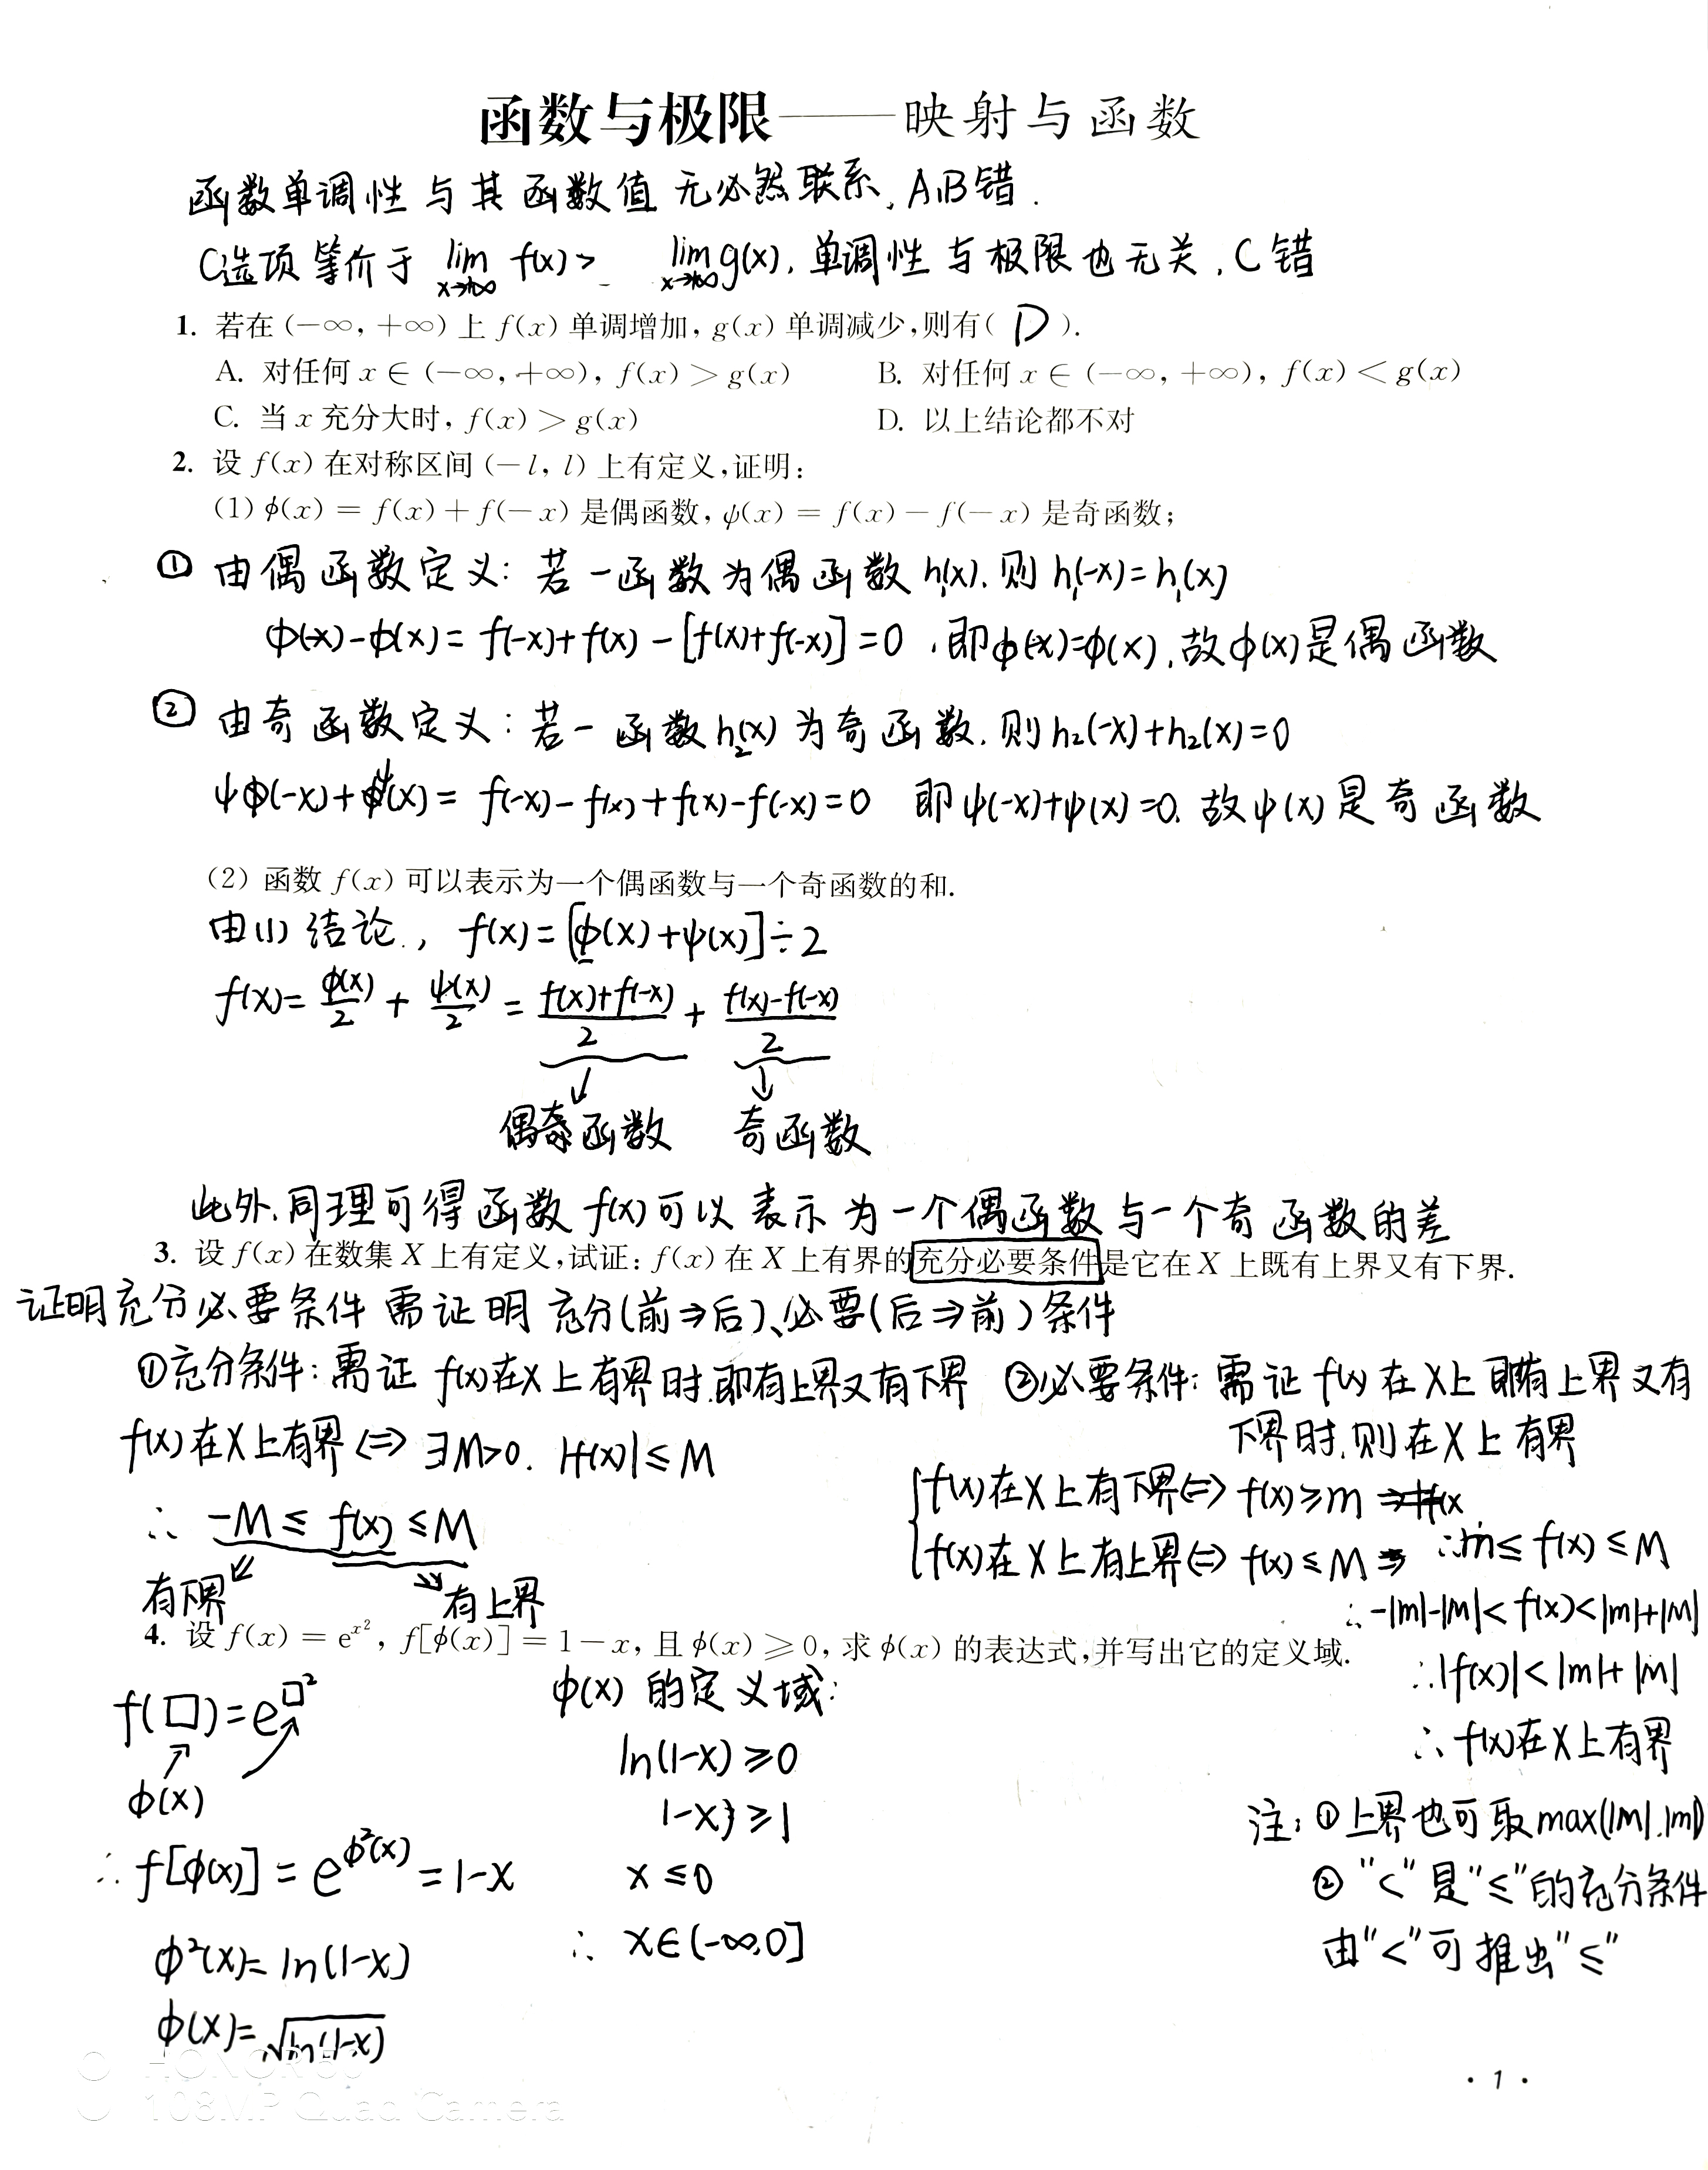 函数与极限——映射与函数
函数单调性与其函数值无必然联系, A,B错.
C选项等价于 lim x→+∞ f(x) > lim x→+∞ g(x), 单调性与极限也无关, C错
1. 若在(−∞, +∞)上 f(x) 单调增加, g(x) 单调减少,则有( D ).
A. 对任何 x ∈ (−∞, +∞), f(x) > g(x)  B. 对任何 x ∈ (−∞, +∞), f(x) < g(x)
C. 当 x 充分大时, f(x) > g(x)  D. 以上结论都不对
2. 设 f(x) 在对称区间 (−l, l) 上有定义,证明:
(1) ϕ(x) = f(x) + f(−x) 是偶函数, ψ(x) = f(x) − f(−x) 是奇函数;
① 由偶函数定义: 若一函数为偶函数 h₁(x), 则 h₁(-x)=h₁(x)
ϕ(-x)-ϕ(x)= f(-x)+f(x)-[f(x)+f(-x)]=0, 即ϕ(-x)=ϕ(x), 故ϕ(x)是偶函数
② 由奇函数定义: 若一函数h₂(x)为奇函数, 则h₂(-x)+h₂(x)=0
ψ(-x)+ψ(x)= f(-x)-f(x)+f(x)-f(-x)=0 即ψ(-x)+ψ(x)=0, 故ψ(x)是奇函数
(2) 函数 f(x) 可以表示为一个偶函数与一个奇函数的和.
由(1)结论, f(x)=[ϕ(x)+ψ(x)]÷2
f(x)= ϕ(x)/2 + ψ(x)/2 = (f(x)+f(-x))/2 + (f(x)-f(-x))/2
偶函数 奇函数
此外,同理可得函数 f(x)可以表示为一个偶函数与一个奇函数的差
3. 设 f(x) 在数集 X 上有定义,试证: f(x) 在 X 上有界的充分必要条件是它在 X 上既有上界又有下界.
证明充分必要条件需证明充分(前⇒后)、必要(后⇒前)条件
①充分条件: 需证 f(x)在X上有界时,即有上界又有下界
f(x)在X上有界 ⇔ ∃M>0, |f(x)|≤M
∴ -M ≤ f(x) ≤ M
有下界 有上界
②必要条件: 需证 f(x)在X上既有上界又有
下界时,则在X上有界
f(x)在X上有下界⇔ f(x)≥m
f(x)在X上有上界⇔ f(x)≤M ⇒ ∴m≤f(x)≤M
∴-|m|-|M|<f(x)<|m|+|M|
∴|f(x)|<|m|+|M|
∴f(x)在X上有界
注: ①上界也可取max(|m|,|m|)
② "<"是"≤"的充分条件
由"<"可推出"≤"
4. 设 f(x) = e^{x²}, f[ϕ(x)] = 1 − x, 且 ϕ(x) ≥ 0, 求 ϕ(x) 的表达式,并写出它的定义域.
f(□)=e^{□²}
ϕ(x)
∴ f[ϕ(x)] = e^{ϕ²(x)} = 1-x
ϕ²(x)= ln(1-x)
ϕ(x)= √ln(1-x)
ϕ(x) 的定义域:
ln(1-x)≥0
1-x≥1
x≤0
∴ x∈(-∞,0]
HONOR 50
108MP Quad Camera
· 1 ·